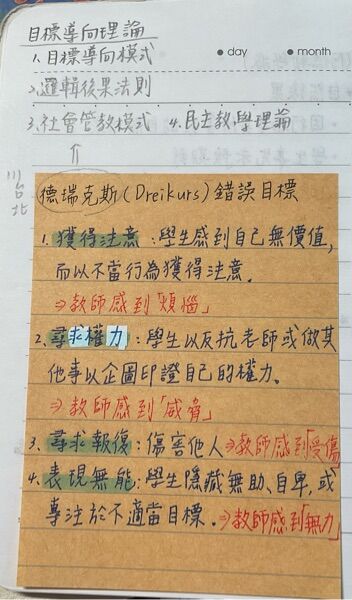 目標導向理論
1.目標導向模式
•day •month
2.邏輯後果法則
3.社會管教模式 4.民主教學理論
德瑞克斯(Dreikurs)錯誤目標
1.獲得注意:學生感到自己無價值,
而以不當行為獲得注意.
⇒教師感到「煩惱」
2.尋求權力:學生以反抗老師或做其
他事以企圖印證自己的權力。
⇒教師感到「威脅」
3.尋求報復:傷害他人⇒教師感到「受傷」
4.表現無能:學生隱藏無助、自卑,或
專注於不適當目標。⇒教師感到「無力」